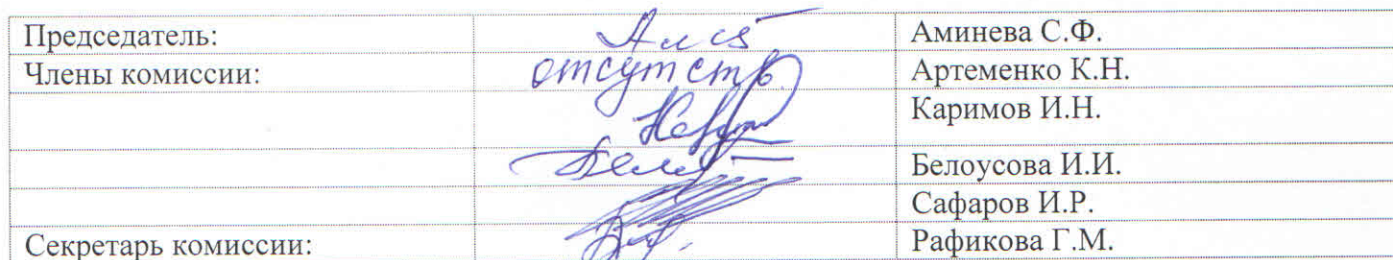 Председатель: Аминева С.Ф.
Члены комиссии: отсутств. Артеменко К.Н.
Каримов И.Н.
Белоусова И.И.
Сафаров И.Р.
Секретарь комиссии: Рафикова Г.М.